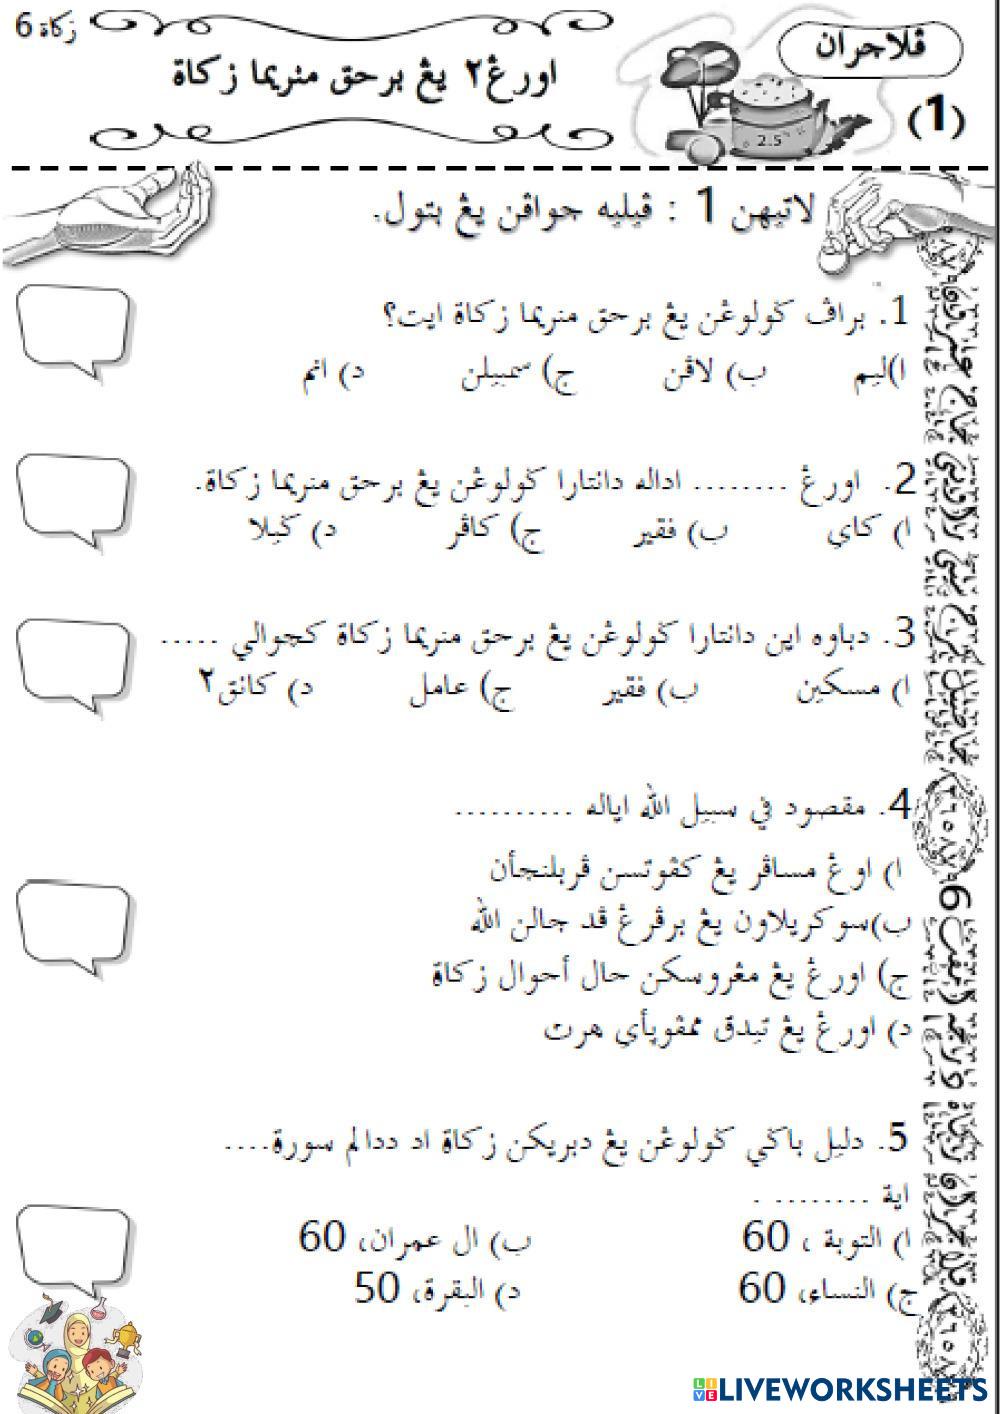 زكاة 6
ڤلاجران
(1)
اورڠ٢ يڠ برحق منريما زكاة
2.5
لاتيهن 1 : ڤيليه جواڤن يڠ بتول.
1. براڤ ݢولوڠن يڠ برحق منريما زكاة ايت؟
ا)ليم ب) لاڤن ج) سمبيلن د) انم
2. اورڠ ........ اداله دانتارا ݢولوڠن يڠ برحق منريما زكاة.
ا) كاي ب) فقير ج) كافر د) ݢيلا
3. دباوه اين دانتارا ݢولوڠن يڠ برحق منريما زكاة كجوالي .....
ا) مسكين ب) فقير ج) عامل د) كانق٢
4. مقصود في سبيل الله اياله ..........
ا) اوڠ مسافر يڠ كڤوتسن ڤربلنجأن
ب)سوكريلاون يڠ برڤرڠ قد جالن الله
ج) اورڠ يڠ مڠروسكن حال أحوال زكاة
د) اورڠ يڠ تيدق ممڤوپأي هرت
5. دليل باݢي ݢولوڠن يڠ دبريكن زكاة اد ددالم سورة....
اية ........ .
ا) التوبة ، 60 ب) ال عمران، 60
ج) النساء، 60 د) البقرة، 50
LIVEWORKSHEETS